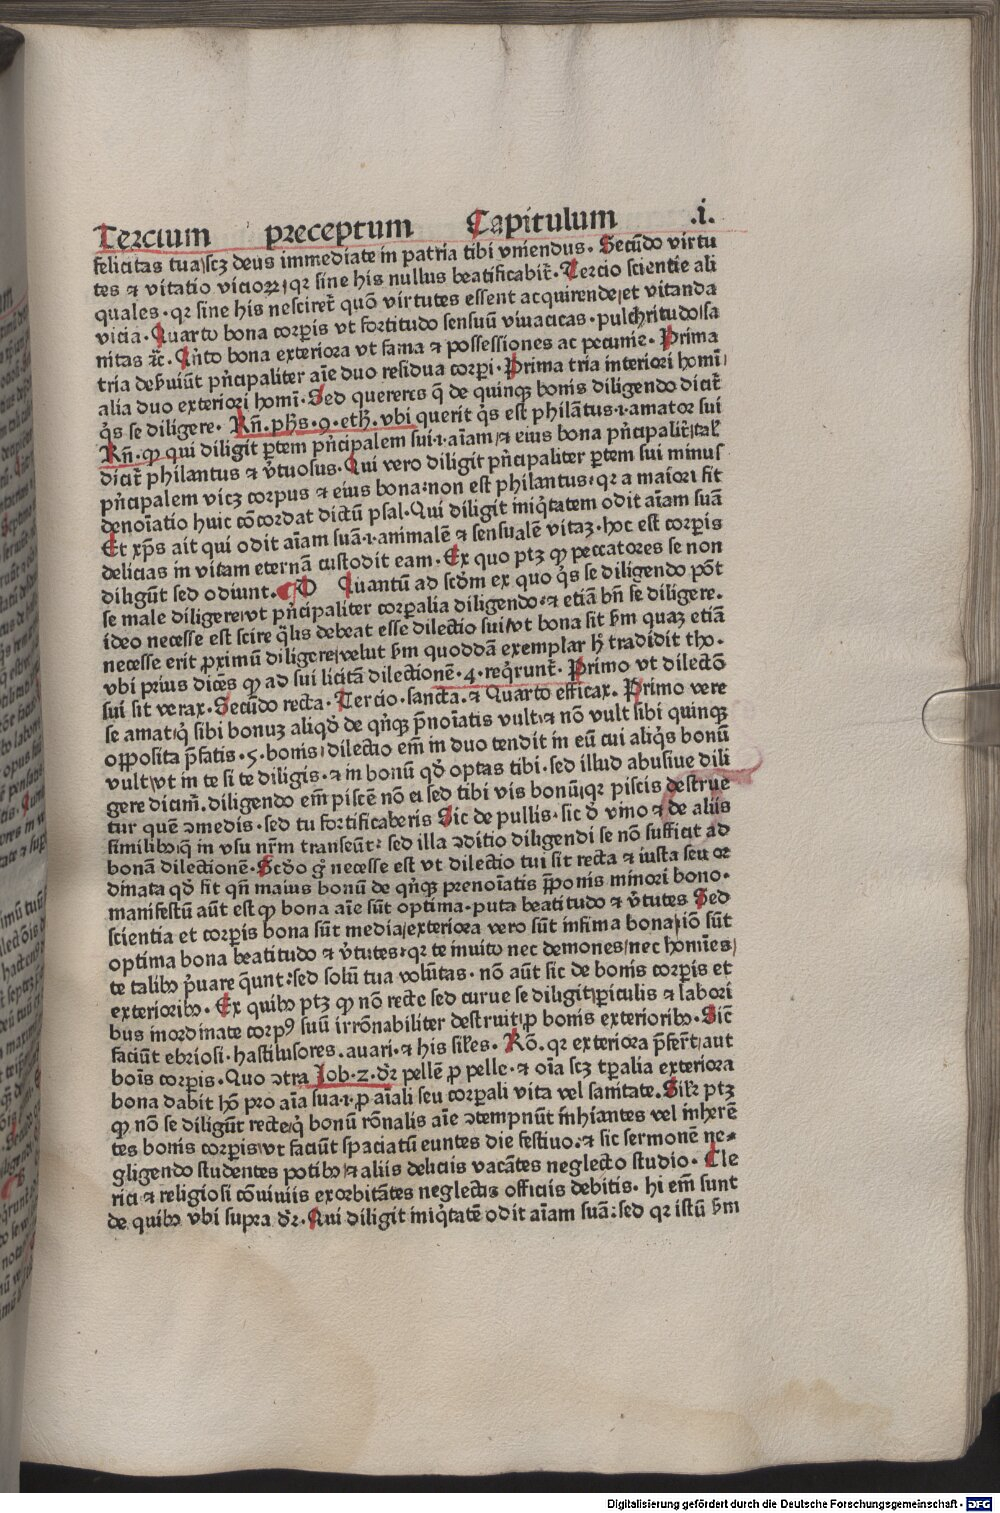 Tercium preceptum Capitulum .i.
felicitas tua/scꝫ deus immediate in patria tibi vniendus. Secūdo virtu
tes ⁊ vitatio vicioꝝ/qr sine his nullus beatificabit̃. Tercio scientie ali
quales. qr sine his nesciret̃ quō virtutes essent acquirende/et vitanda
vicia. Quarto bona corꝑis vt fortitudo sensuū viuacitas. pulchritudo/sa
nitas ⁊c̃. Qn̄to bona exteriora vt fama ⁊ possessiones ac pecunie. Prima
tria debūiūt pñcipaliter aīe duo residua corpi. Prima tria interiori homī/
alia duo exteriori homī. Sed quereres q̄ de quinqꝫ bonis diligendo dicit̃
q̉s se diligere. Rñ. ph̄s. 9. eth̄. vbi querit q̉s est philātus .i. amator sui
Rñ. ꝙ qui diligit ꝑtem pñcipalem sui .i. aīam/⁊ eius bona pñcipalit̃/tal̕
dicit̃ philantus ⁊ v̓tuosus. Qui vero diligit pñcipaliter ꝑtem sui minus
pñcipalem vicꝫ corpus ⁊ eius bona: non est philantus: qr a maiori fit
denoīatio huic cōcordat dictū psal. Qui diligit iniq̉tatem odit aīam suā
Et xp̄s ait qui odit aīam suā .i. animalē ⁊ sensualē vitaꝫ. hoc est corꝑis
delicias in vitam eternā custodit eam. Ex quo ptꝫ ꝙ peccatores se non
diligūt sed odiunt. ¶ D Quantū ad scd̄m ex quo q̉s se diligendo pōt
se male diligere: vt pñcipaliter corꝑalia diligendo. ⁊ etiā bn̄ se diligere.
ideo necesse est scire q̉lis debeat esse dilectio sui/vt bona sit/ẜm quaꝫ etiā
necesse erit ꝓximū diligere/velut ẜm quoddā exemplar h̄ tradidit tho.
vbi prius dicēs ꝙ ad sui licitā dilectionē .4. req̉runt̃. Primo vt dilectō
sui sit verax. Secūdo recta. Tercio. sancta. ⁊ Quarto efficax. Primo vere
se amat/q̉ sibi bonuꝫ aliqd̄ de qn̄qꝫ p̄noīatis vult/⁊ nō vult sibi quinqꝫ
opposita p̄fatis .5. bonis/dilectio em̄ in duo tendit in eū cui aliq̉s bonū
vult/vt in te si te diligis. ⁊ in bonū qd̄ optas tibi. sed illud abusiue dili
gere dicim̃. diligendo em̄ piscē nō ei sed tibi vis bonū/qr piscis destrue
tur quē ↄmedis. sed tu fortificaberis Sic de pullis. sic d̄ vino ⁊ de aliis
similibꝫ/q̉ in vsu nr̄m transeūt: sed illa ↄditio diligendi se nō sufficit ad
bonā dilectionē. Scd̄o g̊ necesse est vt dilectio tui sit recta ⁊ iusta seu or
dinata qd̄ fit qn̄ maius bonū de qn̄qꝫ prenoīatis p̄ponis minori bono.
manifestū aūt est ꝙ bona aīe sūt optima. puta beatitudo ⁊ v̓tutes Sed
scientia et corꝑis bona sūt media/exteriora vero sūt infima bona/iō sūt
optima bona beatitudo ⁊ v̓tutes: qr te inuito nec demones/nec homīes/
te talibꝫ p̓uare q̄unt: sed solū tua volūtas. nō aūt sic de bonis corꝑis et
exterioribꝫ. Ex quibꝫ ptꝫ ꝙ nō recte sed curue se diligit/ꝑiculis ⁊ labori
bus inordinate corpꝰ suū irrōnabiliter destruit/ꝓ bonis exterioribꝫ. Sic̄
faciūt ebriosi. hastilusores. auari. ⁊ his sil̕es. Rō. qr exteriora p̄fer̃t/aut
boīs corꝑis. Quo ↄtra Iob. 2. dr̄ pellē ꝓ pelle. ⁊ oīa scꝫ tꝑalia exteriora
bona dabit hō pro aīa sua .i. ꝓ aīali seu corꝑali vita vel sanitate. Sil̕r ptꝫ
ꝙ nō se diligūt recte/q̉ bonū rōnalis aīe ↄtempnūt inhiantes vel inherē
tes bonis corꝑis/vt faciūt spaciatū euntes die festiuo. ⁊ sic sermonē ne-
gligendo studentes potibꝫ/⁊ aliis deliciis vacātes neglecto studio. Cle
rici ⁊ religiosi cōuiuiis exorbitātes neglectis officiis debitis. hi em̄ sunt
de quibꝫ vbi supra dr̄. Qui diligit iniq̉tatē odit aīam suā: sed qr istū ẜm
Digitalisierung gefördert durch die Deutsche Forschungsgemeinschaft - DFG